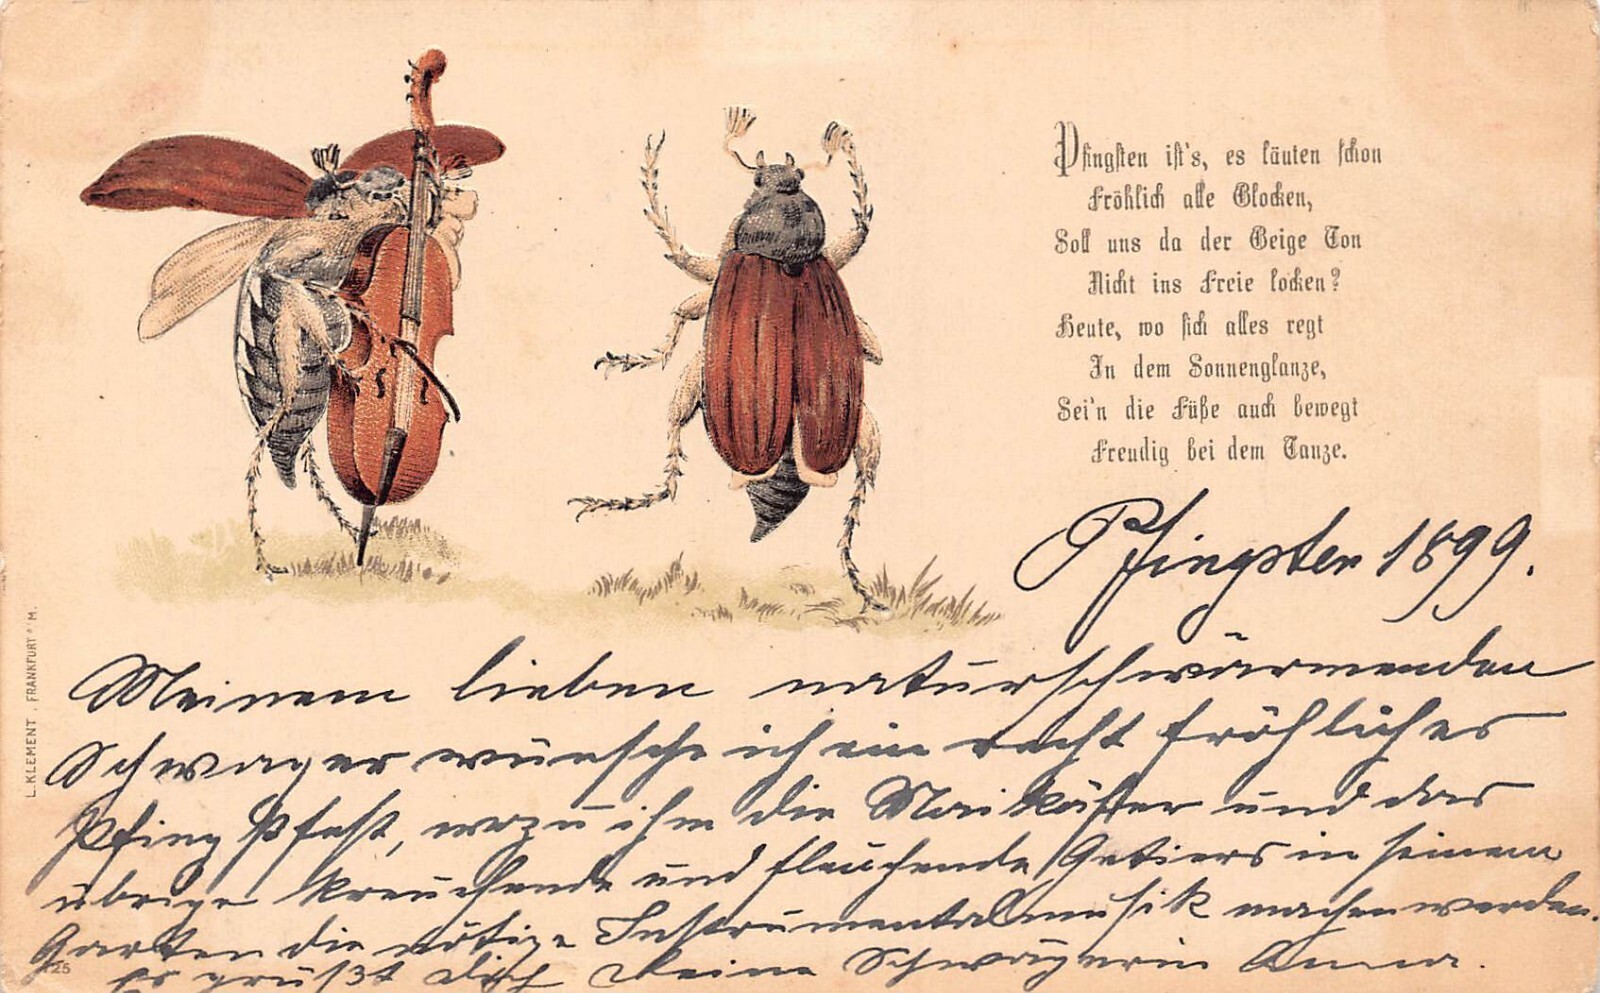 Pfingsten ist's, es läuten schon
Fröhlich alle Glocken,
Soll uns da der Geige Ton
Nicht ins Freie locken?
Heute, wo sich alles regt
In dem Sonnenglanze,
Sei'n die Füße auch bewegt
Freudig bei dem Tanze.
Pfingsten 1899.
Meinem lieben naturschwärmenden
Schwager wünsche ich ein recht fröhliches
Pfingstfest, wozu ihm die Maikäfer und das
übrige kreuchende und fleuchende Getiers in seinem
Garten die nötige Instrumentalmusik machen werden.
Es grüßt dich deine Schwägerin Anna.
L. KLEMENT, FRANKFURT a/M.